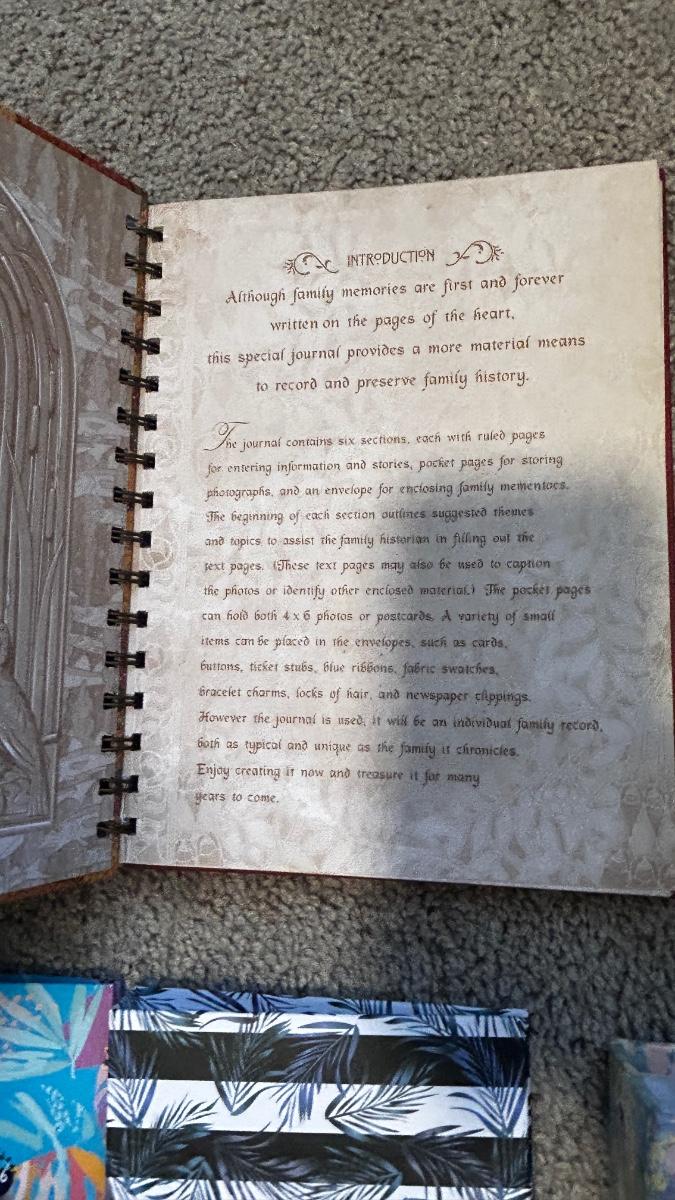 INTRODUCTION
Although family memories are first and forever
written on the pages of the heart,
this special journal provides a more material means
to record and preserve family history.
The journal contains six sections, each with ruled pages
for entering information and stories, pocket pages for storing
photographs, and an envelope for enclosing family mementoes.
The beginning of each section outlines suggested themes
and topics to assist the family historian in filling out the
text pages. (These text pages may also be used to caption
the photos or identify other enclosed material.) The pocket pages
can hold both 4 x 6 photos or postcards. A variety of small
items can be placed in the envelopes, such as cards,
buttons, ticket stubs, blue ribbons, fabric swatches,
bracelet charms, locks of hair, and newspaper clippings.
However the journal is used, it will be an individual family record,
both as typical and unique as the family it chronicles.
Enjoy creating it now and treasure it for many
years to come.